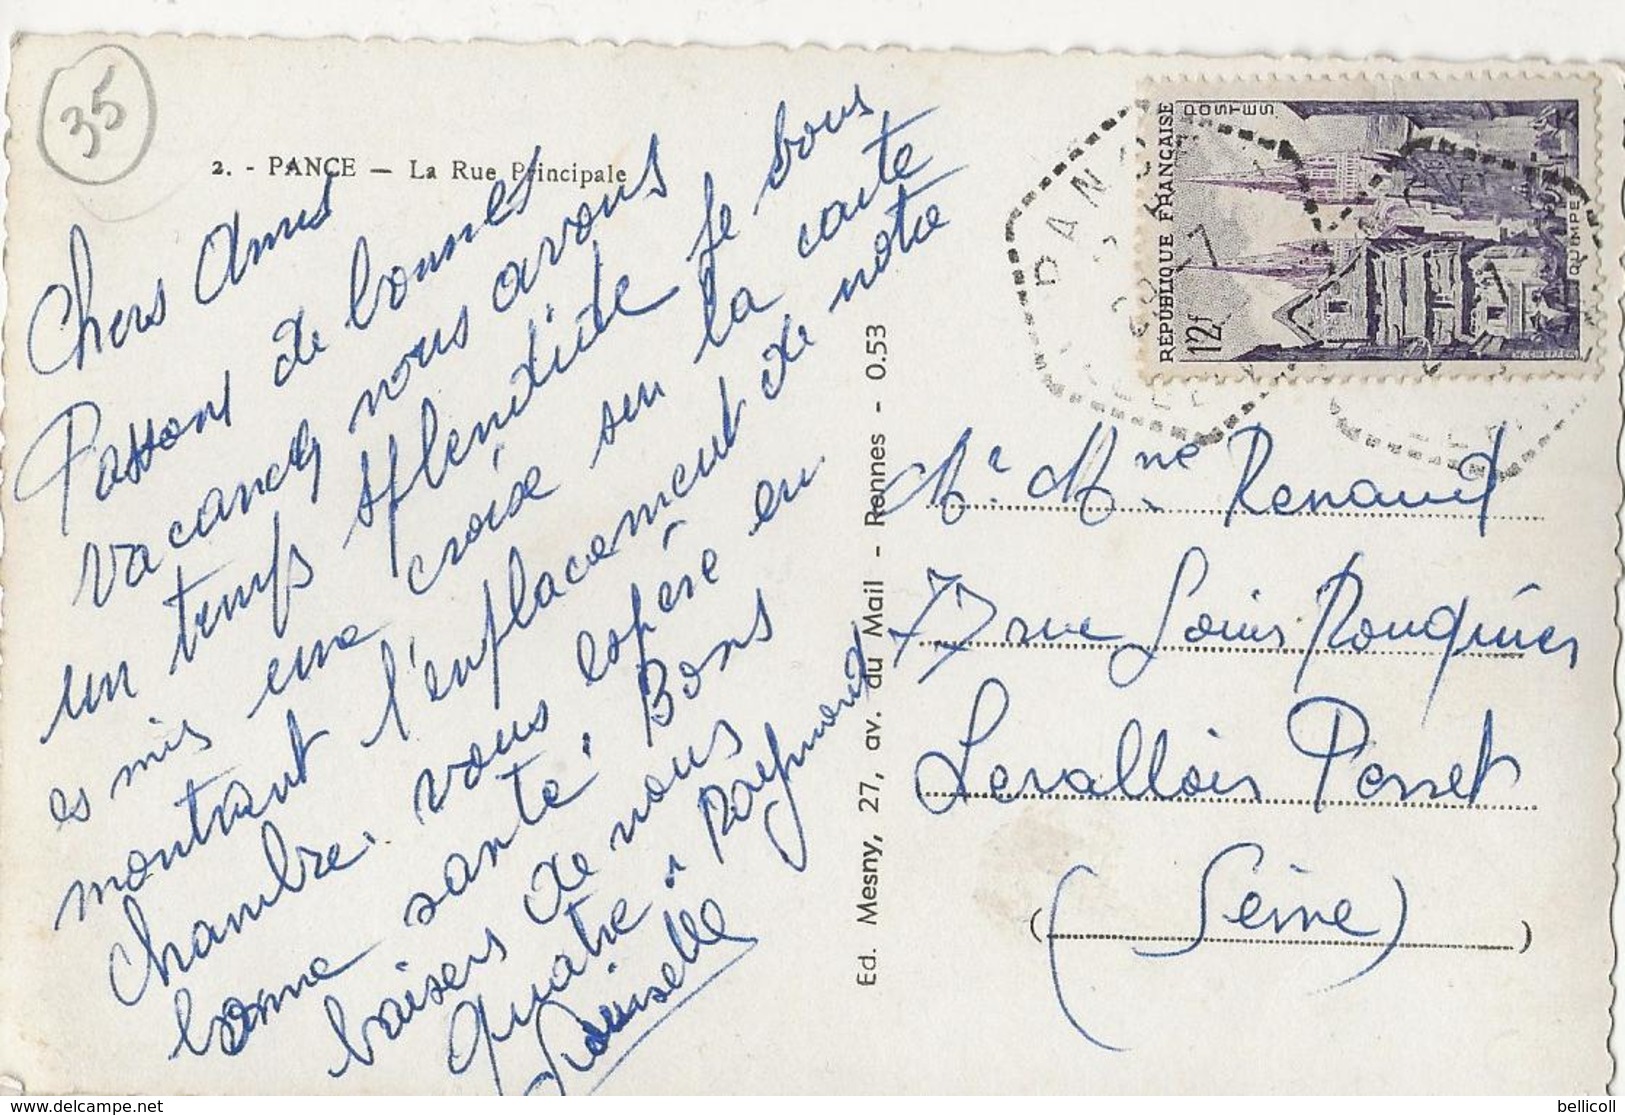 35
2. - PANCE — La Rue Principale
Chers Amis
Passons de bonnes
vacances nous avons
un temps splendide je vous
es mis une croix sur la carte
montrant l'emplacement de notre
chambre. vous espère en
bonne santé. Bons
baisers de nous
quatre. Raymond
Louisette
Ed. Mesny, 27, av. du Mail - Rennes - 0.53
RÉPUBLIQUE FRANÇAISE
POSTES
12f
QUIMPER
PANCÉ
Mr Mme Renaud
77 rue Louis Rouquier
Levallois Perret
(Seine)
delcampe.net
bellicoll